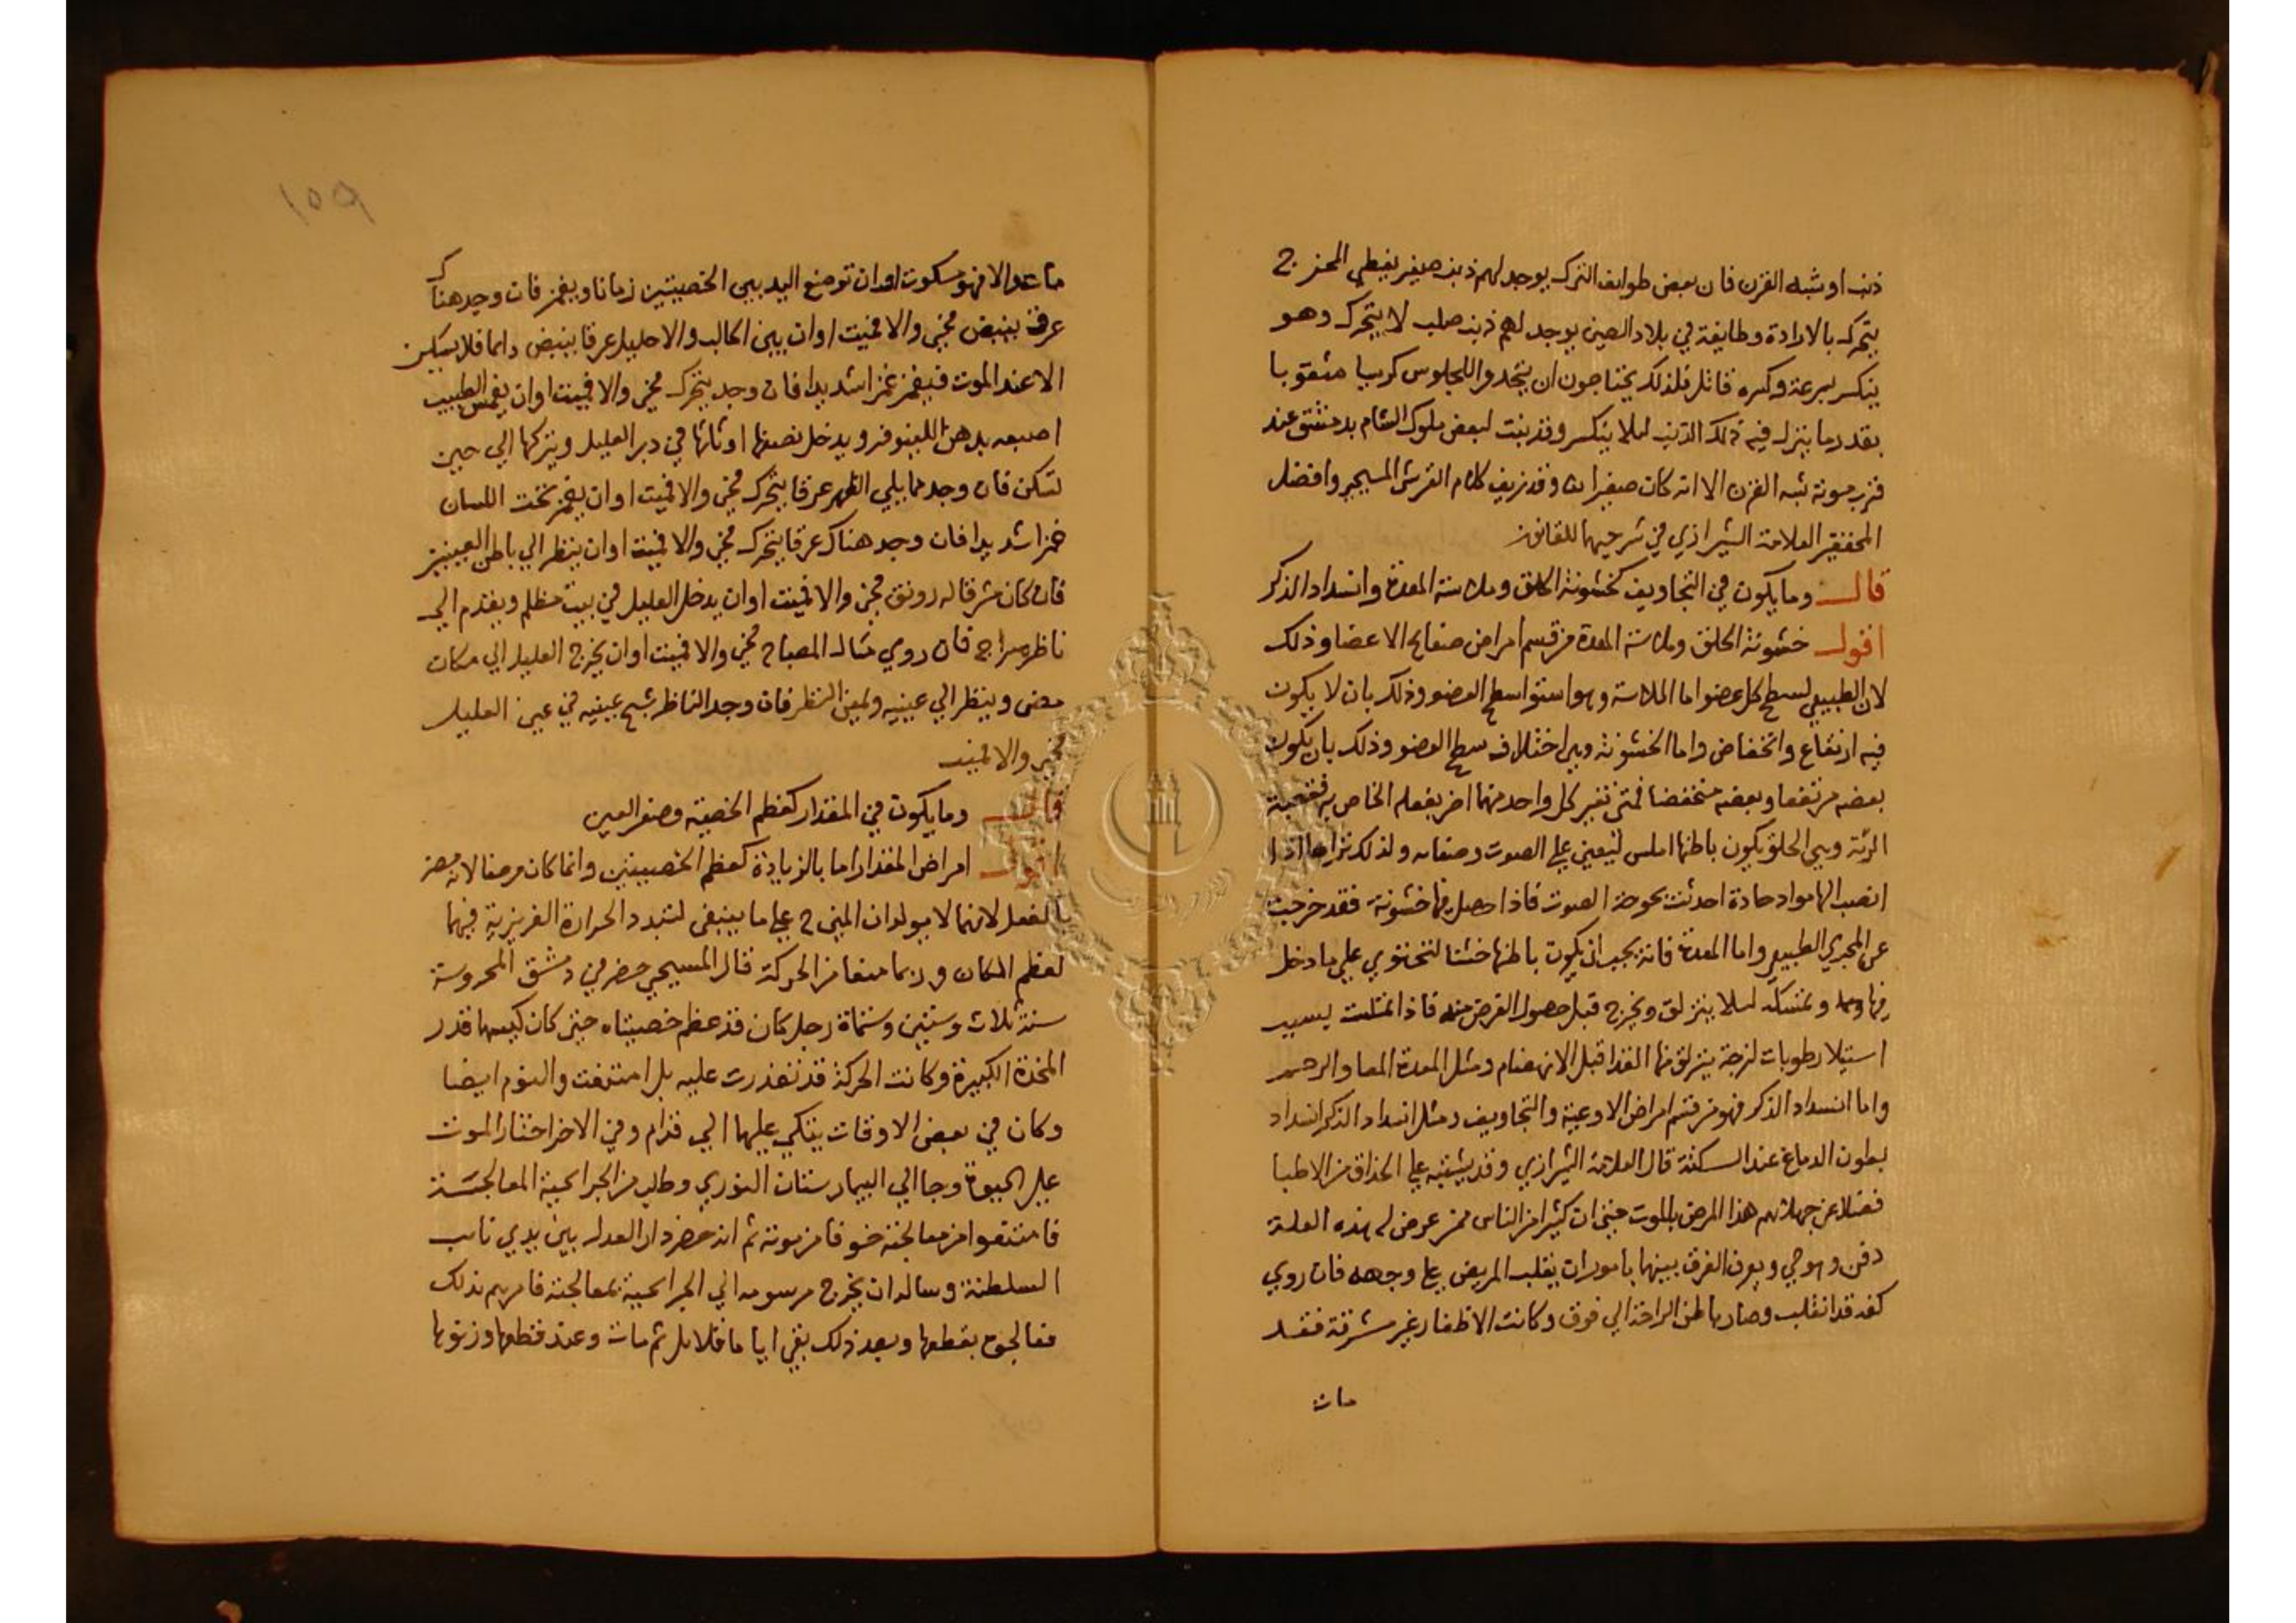 ذنب او شبه القرن فان بعض طوايف الترك يوجد لهم ذنب صغير يغطي المخرج
يتحرك بالارادة وطايفة في بلاد الصين يوجد لهم ذنب صلب لا يتحرك وهو
ينكسر بسرعة وكسره قاتل فلذلك يحتاجون ان يتخذوا للجلوس كرسيا مثقوبا
بقدر ما ينزل فيه ذلك الذنب ليلا ينكسر وقد نبت لبعض ملوك الشام بدمشق عند
قرب موته شبه القرن الا انه كان صغيرا وقد زيف كلام القرشي المسيحي وافضل
المحققين العلامة الشيرازي في شرحيهما للقانون
قال وما يكون في التجاويف كخشونة الحلق وملاسة المعدة وانسداد الذكر
اقول خشونة الحلق وملاسة المعدة من قسم امراض صفايح الاعضا وذلك
لان الطبيعي لسطح كل عضو اما الملاسة وهو استوا سطح العضو وذلك بان لا يكون
فيه ارتفاع وانخفاض واما الخشونة وهي اختلاف سطح العضو وذلك بان يكون
بعضه مرتفعا وبعضه منخفضا فمتى تغير كل واحد منهما اضر بفعله الخاص به فقصبة
الرئة وهي الحلق يكون باطنها املس ليعين علي الصوت وصفايه ولذلك نراها اذا
انصب الها مواد حادة احدثت بحوحة الصوت فاذا حصل فيها خشونة فقد خرجت
عن المجري الطبيعي واما المعدة فانه يجب ان يكون باطنها خشنا لتحتوي علي ما دخل
فيها وتمسكه ليلا ينزلق ويخرج قبل حصول الغرض منه فاذا تملست بسبب
استيلا رطوبات لزجة ينزلق منها الغذا قبل الانهضام ومثل المعدة المعا والرحم
واما انسداد الذكر فهو من قسم امراض الاوعية والتجاويف ومثل انسداد الذكر انسداد
بطون الدماغ عند السكتة قال العلامة الشيرازي وقد يشتبه علي الحذاق من الاطبا
فضلا عن جهالهم هذا المرض بالموت حتى ان كثيرا من الناس ممن عرض له هذه العلة
دفن وهو حي ويعرف الفرق بينهما بامور ان يقلب المريض علي وجهه فان روي
كفه قد انقلب وصار باطن الراحة الي فوق وكانت الاظفار غير مشرفة فقد
مات
١٥٩
مات والا فهو سكوت او ان توضع اليد بين الخصيتين زمانا ويغمز فان وجد هناك
عرق ينبض فحي والا فميت او ان بين الحالب والاحليل عرقا ينبض دايما فلا يسكن
الا عند الموت فيغمز غمزا شديدا فان وجد يتحرك فحي والا فميت او ان يغمس الطبيب
اصبعه بدهن اللينوفر ويدخل نصفها او ثلثها في دبر العليل ويتركها الي حين
تسكن فان وجد مما يلي الظهر عرقا يتحرك فحي والا فميت او ان يغمز تحت اللسان
غمزا شديدا فان وجد هناك عرقا يتحرك فحي والا فميت او ان ينظر الي باطن العينين
فان كان مشرقا له رونق فحي والا فميت او ان يدخل العليل في بيت مظلم ويقدم الي
ناظره سراج فان روي مثال المصباح فحي والا فميت او ان يخرج العليل الي مكان
مضي وينظر الي عينيه ويمعن النظر فان وجد الناظر شبح عينيه في عين العليل
فحي والا فميت
قال وما يكون في المقدار كعظم الخصية وصغر العين
اقول امراض المقدار اما بالزيادة كعظم الخصيتين وانما كان مرضا لانه مضر
بالفعل لانهما لا يولدان المني ح علي ما ينبغي لتبدد الحرارة الغريزية فيهما
لعظم المكان وربما منعا من الحركة قال المسيحي حضر في دمشق المحروسة
سنة ثلاث وستين وستماة رجل كان قد عظم خصيتاه حتى كان كيسها قدر
المخدة الكبيرة وكانت الحركة قد تعذرت عليه بل امتنعت والنوم ايضا
وكان في بعض الاوقات يتكي عليهما الي قدام وفي الاخر اختار الموت
علي الحيوة وجا الي البيمارستان النوري وطلب من الجرايحية المعالجة
فامتنعوا من معالجته خوفا من موته ثم انه حضر دار العدل بين يدي نايب
السلطنة وساله ان يخرج مرسومه الي الجرايحية بمعالجته فامرهم بذلك
فعالجوه بقطعها وبعد ذلك بقي اياما قلايل ثم مات وعند قطعها وزنوها